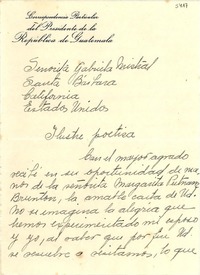 Correspondencia Particular
del Presidente de la
República de Guatemala
Señorita Gabriela Mistral
Santa Bárbara
California
Estados Unidos
Ilustre poetisa
Con el mayor agrado
recibí en su oportunidad de ma-
nos de la señorita Margarita Putnam
Brunton, la amable carta de Ud.
No se imagina la alegría que
hemos experimentado mi esposo
y yo, al saber que por fin Ud.
se resuelve a visitarnos, lo que